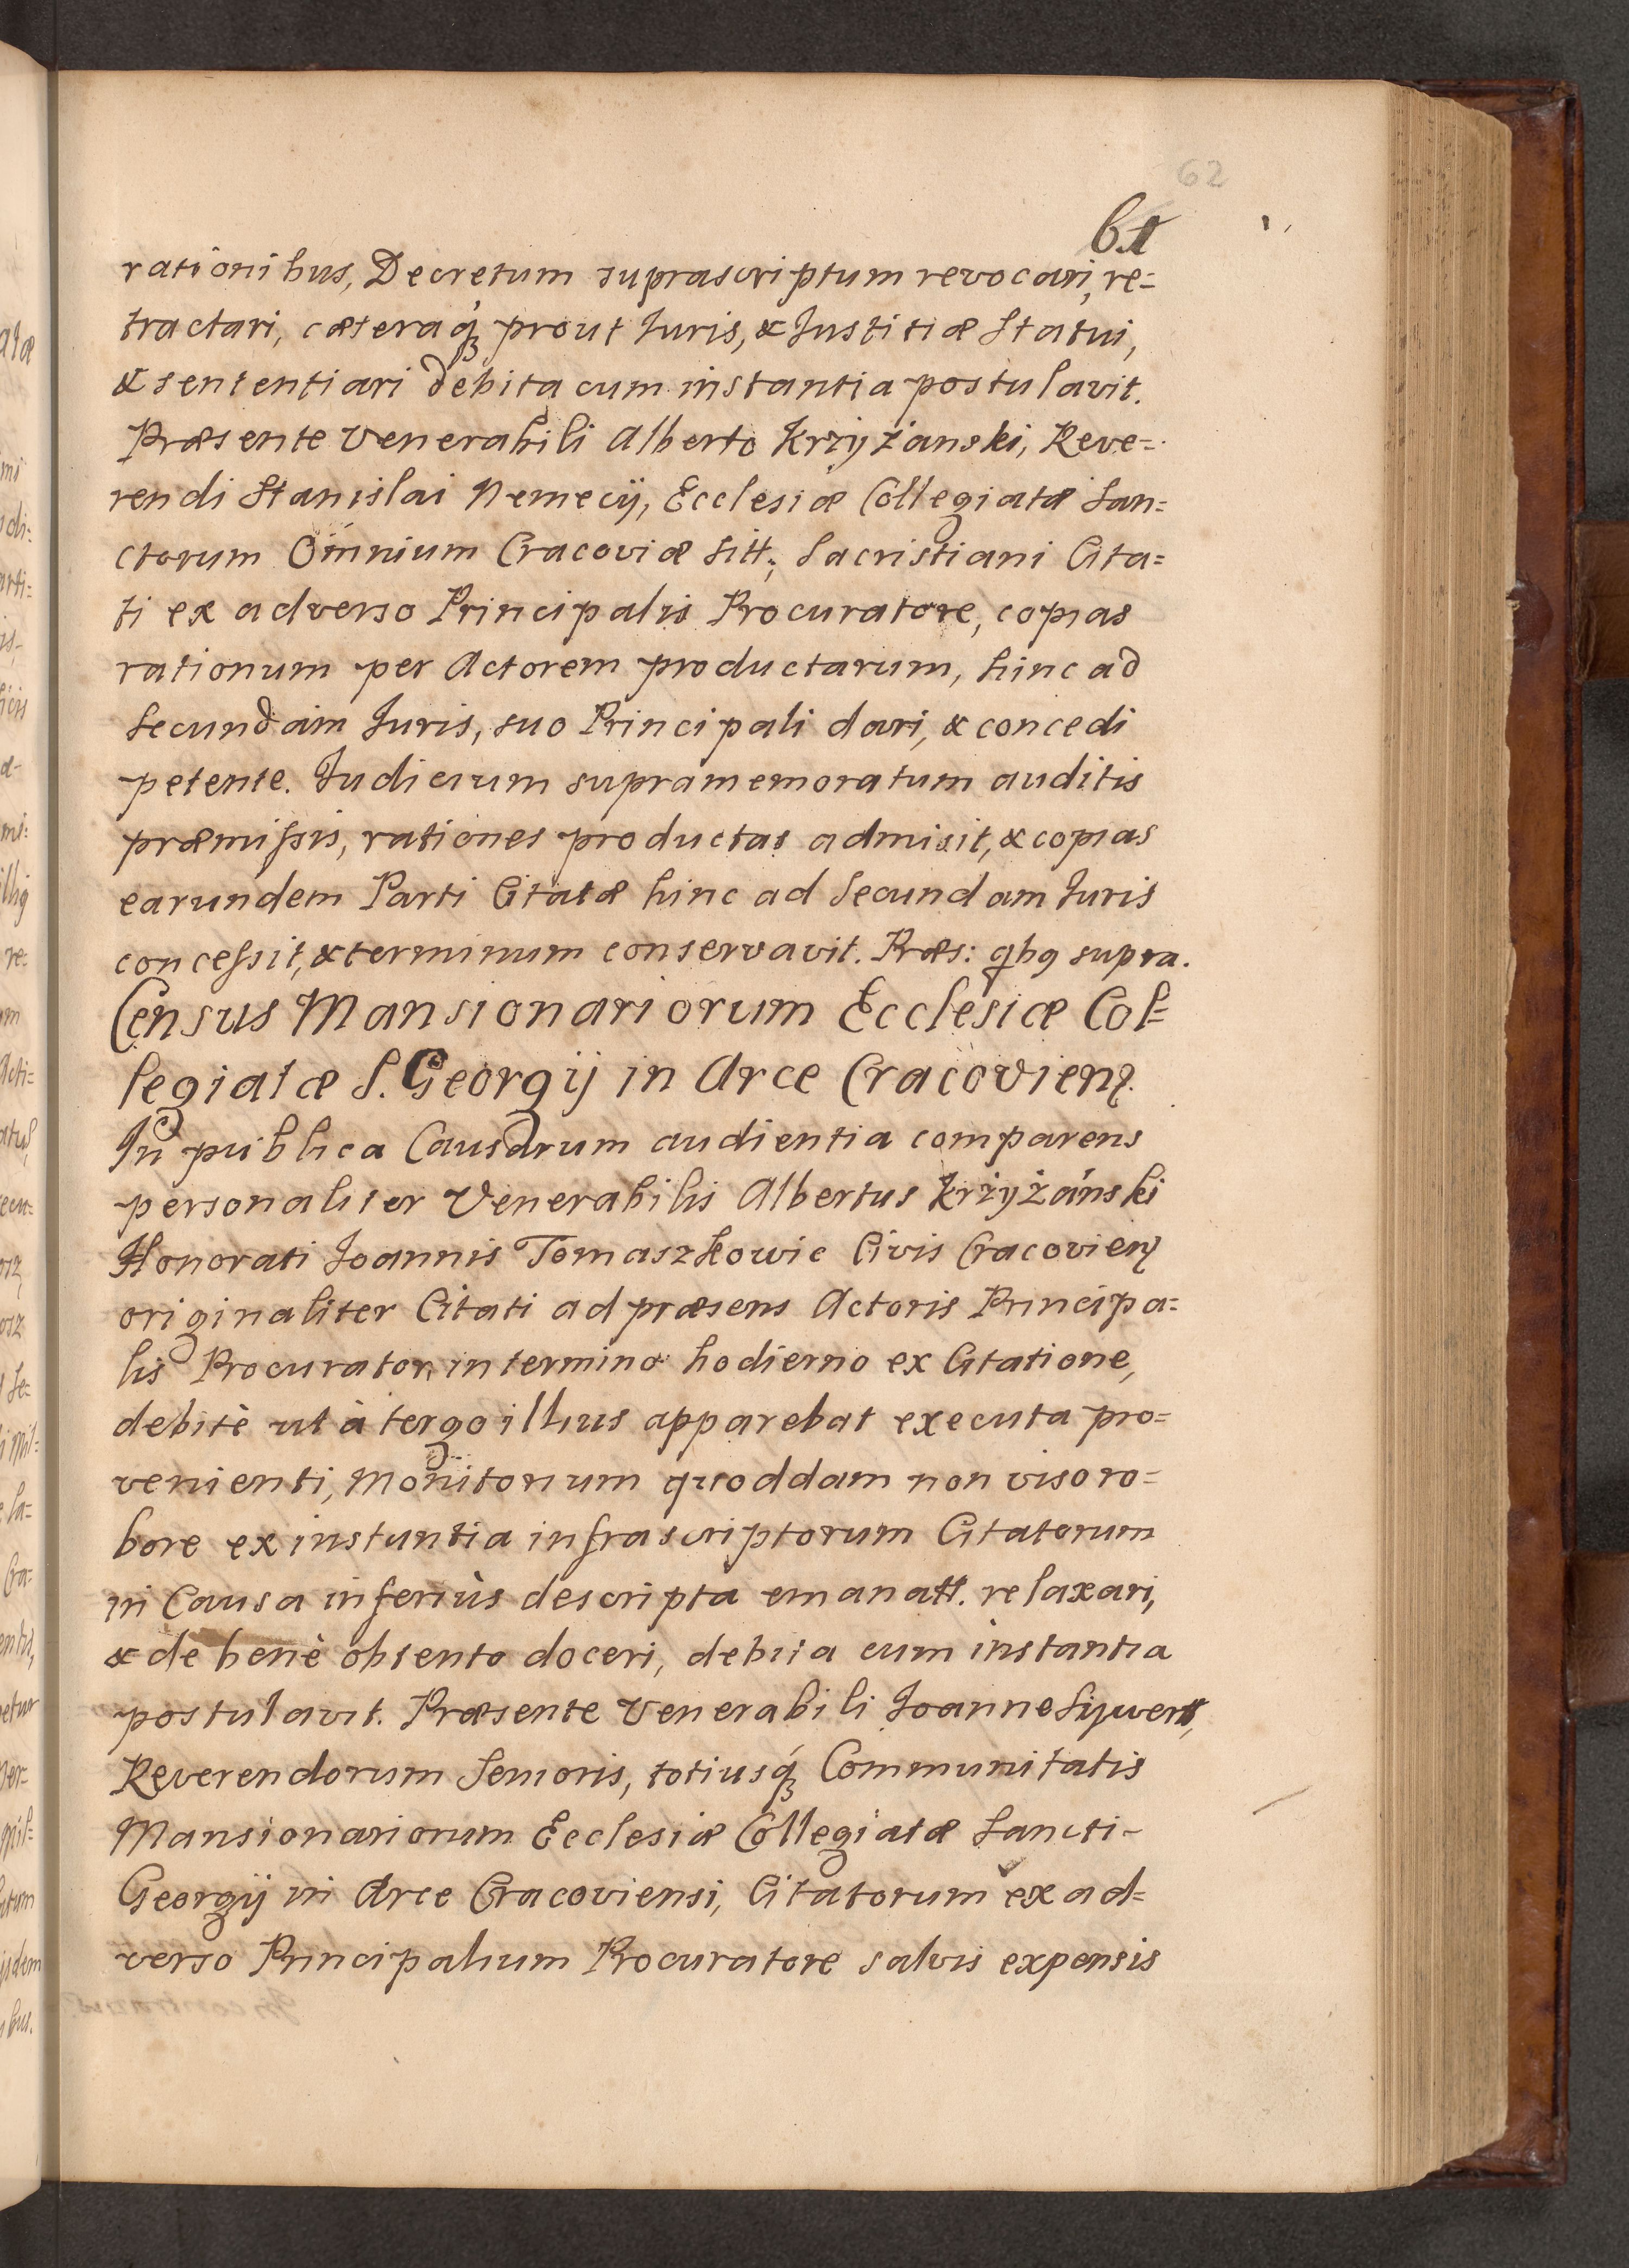 62
61
rationibus, Decretum suprascriptum revocari, re=
tractari, cæteraq́ꝫ prout Juris, & Justitiæ Statui,
& sententiari debita cum instantia postulavit.
Præsente Venerabili Alberto Krzyżanski, Reve=
rendi Stanislai Nemecij, Ecclesiæ Collegiatæ San=
ctorum Omnium Cracoviæ sitt; Sacristiani Cita=
ti ex adverso Principalis Procuratore, copias
rationum per Actorem productarum, hinc ad
Secundam Juris, suo Principali dari, & concedi
petente. Judicium supramemoratum auditis
præmissis, rationes productas admisit, & copias
earundem Parti Citatæ hinc ad Secundam Juris
concessit, & terminum conservavit. Præs: qbꝰ supra.
Census Mansionariorum Ecclesiæ Col=
legiatæ S. Georgij in Arce Cracovienꝭ.
In publica Causarum audientia comparens
personaliter Venerabilis Albertus Krżyżánski
Honorati Joannis Tomaszkowic Civis Cracovienꝭ
originaliter Citati ad præsens Actoris Principa=
lis Procurator, in termino hodierno ex Citatione,
debitè ut à tergo illius apparebat executa pro=
venienti, Monitorium quoddam non viso ro=
bore ex instantia infrascriptorum Citatorum
in Causa inferiùs descripta emanatt. relaxari,
& de benè obtento doceri, debita cum instantia
postulavit. Præsente Venerabili Joanne
Reverendorum Senioris, totiusq́ꝫ Communitatis
Mansionariorum Ecclesiæ Collegiatæ Sancti-
Georgij in Arce Cracoviensi, Citatorum ex ad=
verso Principalium Procuratore salvis expensis